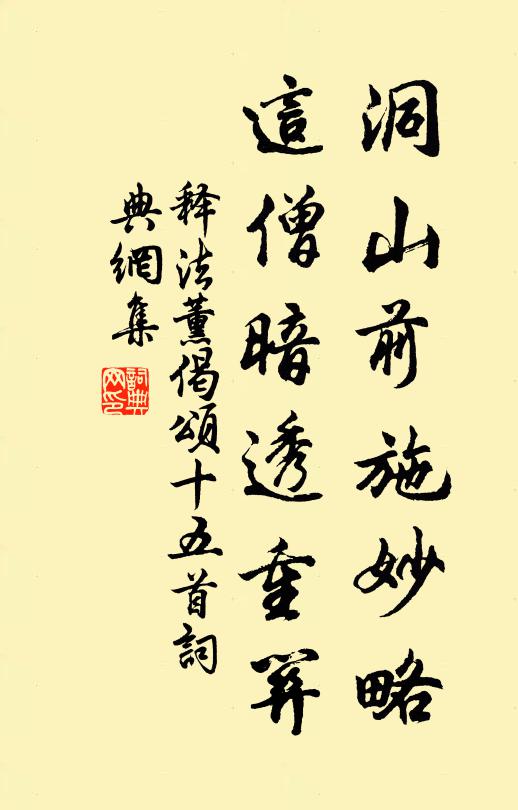 洞山前施妙略
這僧暗透重關
释法薰偈頌十五首詞
典網集
詞典
网印